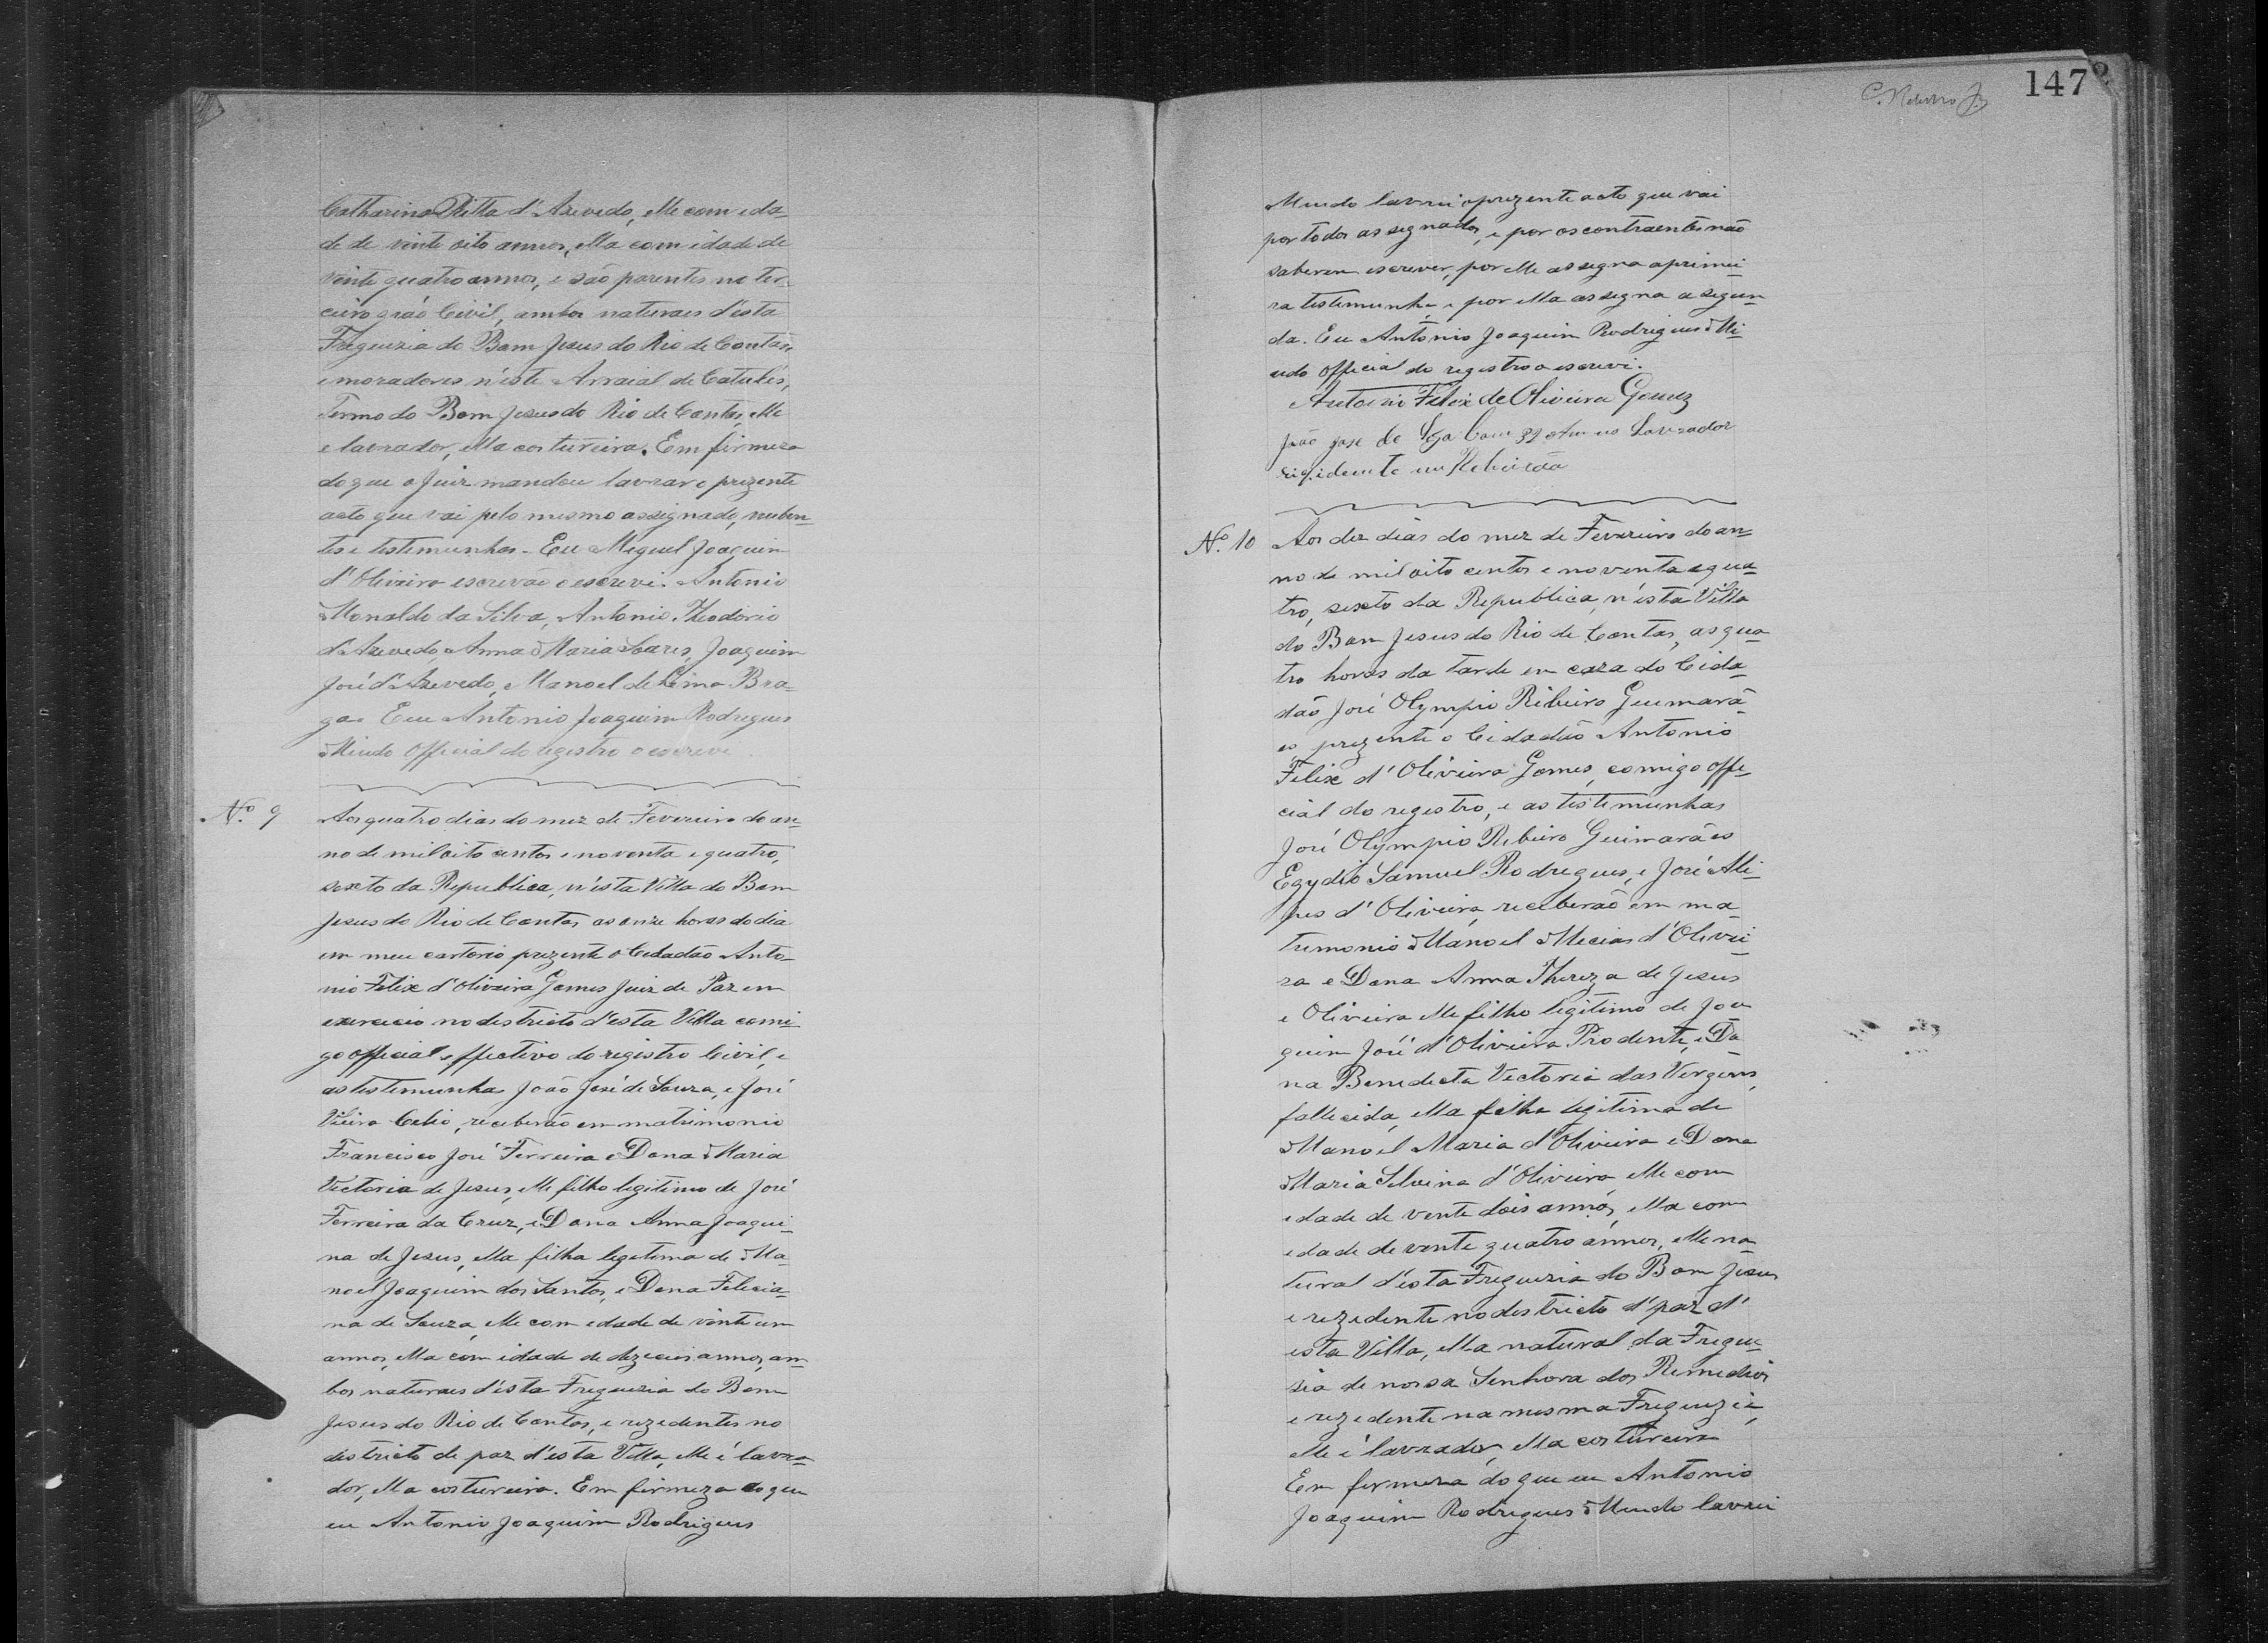 Catharina Ritta d'Azevedo, elle com eda-
de de vinte oito annos, ella com idade de
vinte quatro annos, e são parentes no ter-
ceiro gráo Civil, ambos naturaes d'esta
Freguezia do Bom Jesus do Rio de Contas,
e moradores n'este Arraial de Catulés,
Termo do Bom Jesus do Rio de Contas, elle
e lavrador, ella costureira. Em firmeza
do que o Juiz mandou lavrar o prezente
acto que vai pelo mesmo assignado, nuben-
tes e testemunhas - Eu Miguel Joaquim
d'Oliveira escrevão o escrevi. Antonio
Monaldo da Silva, Antonio Theodorio
d'Azevedo, Anna Maria Soares, Joaquim
José d'Azevedo, Manoel de Lima Bra-
ga. Eu Antonio Joaquim Rodrigues
Miudo official do registro o escrevi
Nº 9 Aos quatro dias do mez de Fevereiro do an-
no de mil oito centos e noventa e quatro,
sexto da Republica, n'esta Villa do Bom
Jesus do Rio de Contas as onze horas do dia
em meu cartorio prezente o Cedadão Anto-
nio Felix d'Oliveira Gomes Juiz de Paz em
exercicio no destricto d'esta Villa comi-
go official effectivo do registro Civil, e
as testemunhas João José de Souza, e José
Vieira Celio, receberão em matrimonio
Francisco José Ferreira e Dona Maria
Victoria de Jesus, elle filho legitimo de José
Ferreira da Cruz, e Dona Anna Joaqui-
na de Jesus, ella filha legetima de Ma-
noel Joaquim dos Santos, e Dona Felicia-
na de Souza, elle com edade de vinte um
annos, ella com idade de dezeseis annos, am-
bos naturaes d'esta Freguezia do Bom
Jesus do Rio de Contas, e rezedentes no
destricto de paz d'esta Villa, elle é lavra-
dor, ella costureira. Em firmeza do que
eu Antonio Joaquim Rodrigues
147
Miudo lavrei o prezente acto que vai
por todos assegnados, e por os contraentes não
saberem escrever, por elle assegna a primei-
ra testemunha, e por ella assegna a segun-
da. Eu Antonio Joaquim Rodrigues Mi-
udo official do registro o escrevi.
Antonio Felix de Oliveira Gomez
João jose de Com 32 Lavrador
rezidente
Nº 10 Aos dez dias do mez de Fevereiro do an-
no de mil oito centos e noventa e qua-
tro, sexto da Republica, n'esta Villa
do Bom Jesus do Rio de Contas, as qua-
tro horas da tarde em caza do Cida-
dão José Olympio Ribeiro Guimarã-
es prezente o Cidadão Antonio
Felix d'Oliveira Gomes, comigo offe-
cial do registro, e as testemunhas
José Olympio Rebeiro Guimarães
Egydio Samuel Rodregues, e José Ali-
pes d'Oliveira, receberão em ma-
tremonio Manoel Mecias d'Olivei-
ra e Dona Anna Thereza de Jesus
e Oliveira elle filho legitimo de Joa-
quim José d'Oliveira Prodente, e Do-
na Benedicta Victoria das Vergens,
fallecida, ella filha legitima de
Manoel Maria d'Oliveira e Dona
Maria Silvina d'Oliveira, elle com
edade de vente dois annos, ella com
edade de vente quatro annos, elle na-
tural d'esta Freguezia do Bom Jesus
e rezedente no destricto d'paz d'
esta Villa, ella natural da Fregue-
sia de nossa Senhora dos Remedios
e rezedente na mesma Freguezia,
elle é lavrador, ella costureira
Em firmeza do que eu Antonio
Joaquim Rodregues Miudo lavrei